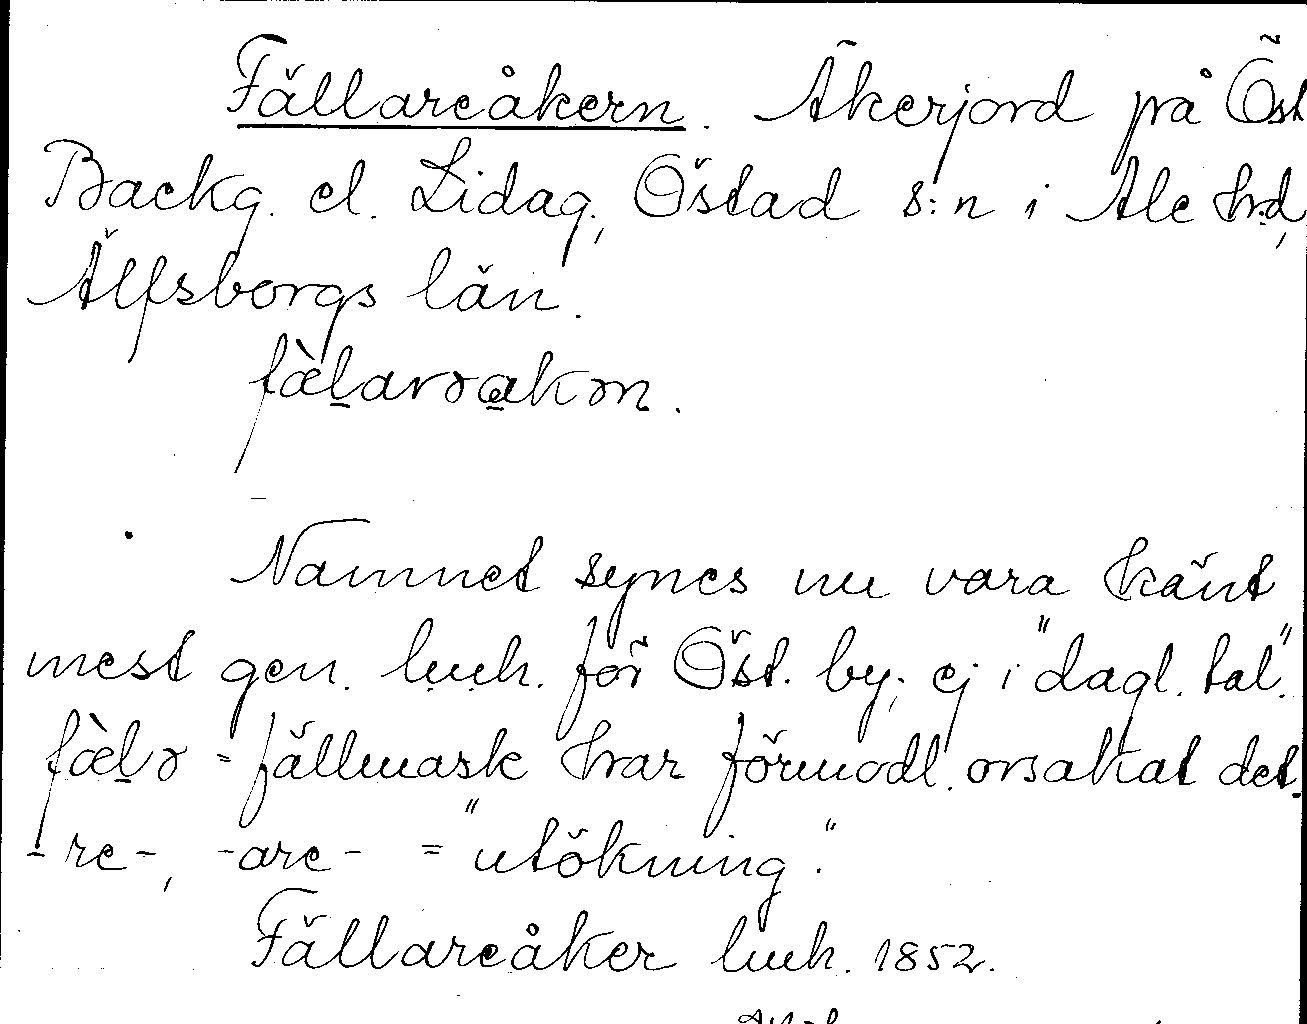 Fällareåkern. Åkerjord på Öst
Backg. el. Lidag., Östad s:n i Ale hrd,
Älfsborgs län.
Namnet synes nu vara känt
mest gen. lmh. för Öst. by; ej i "dagl. tal".
= fällmask har förmodl. orsakat det.
-re-, -are- = "utökning".
Fällareåker lmh. 1852.